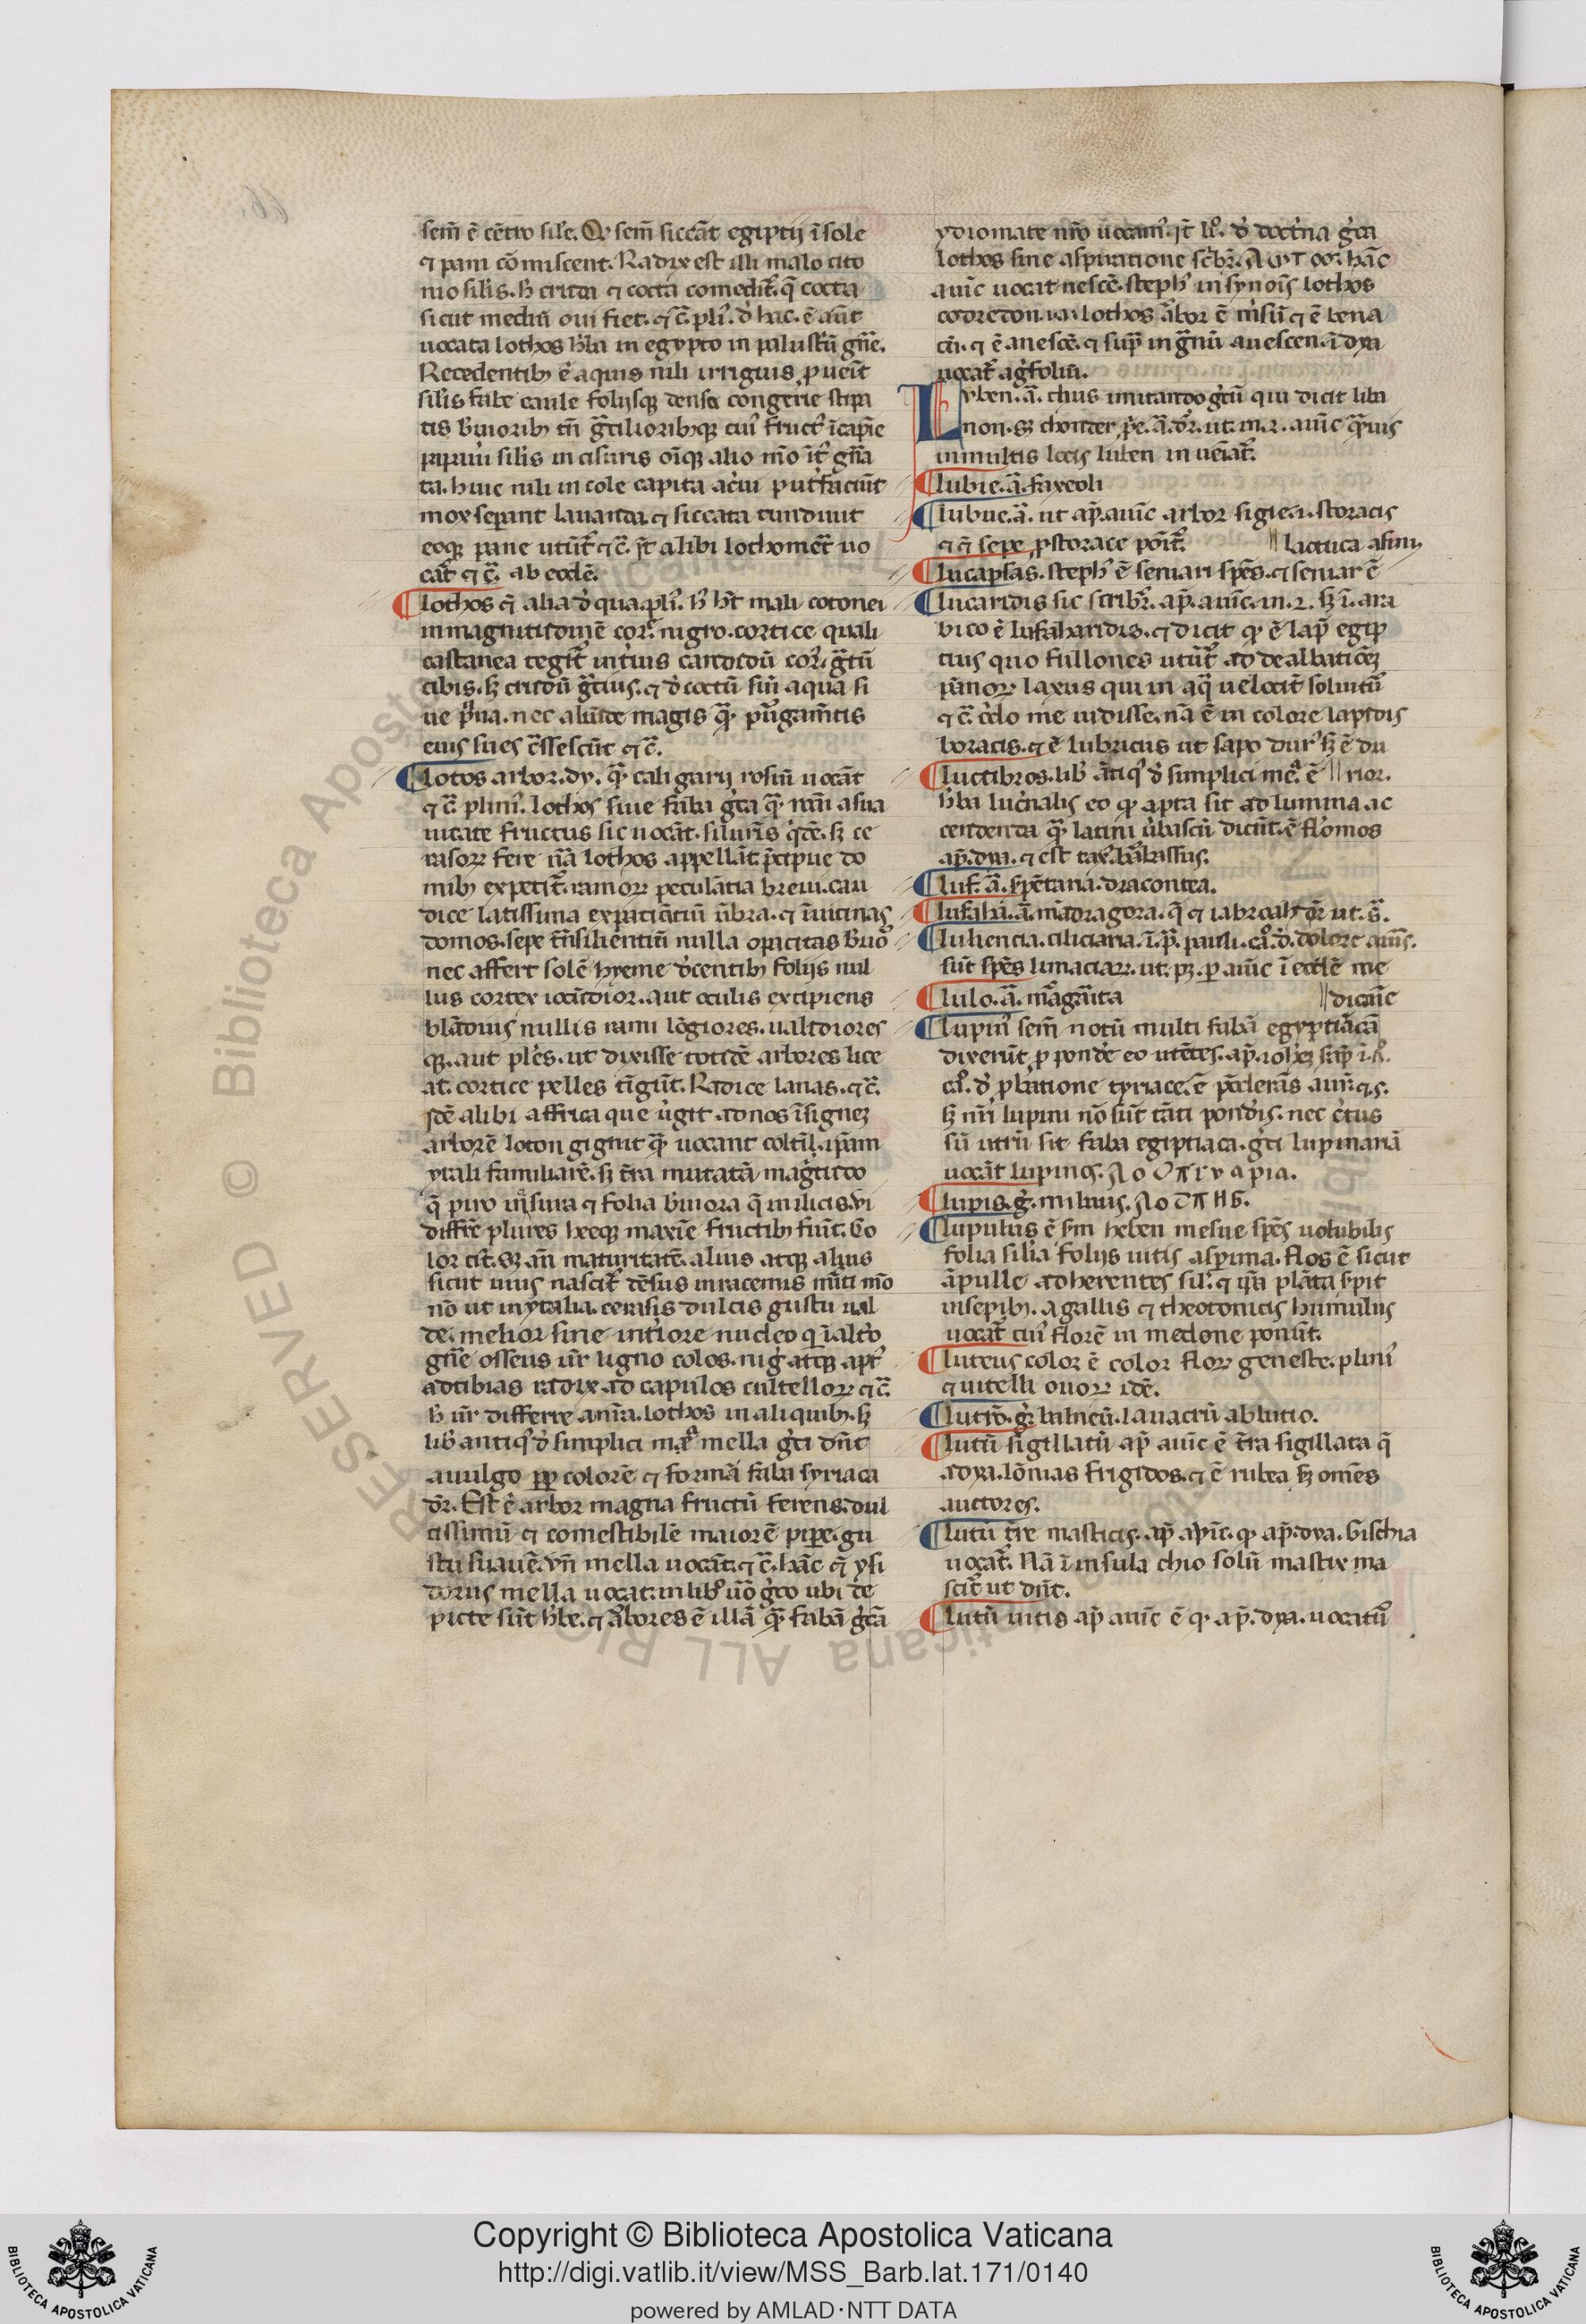 sem̃ ẽ cẽtro sil'e. Qr sem̃ siccãt egiptij ĩ sole
⁊ pani cõmiscent. Radix est illi malo cito
nio sil'is. h̃ cruda ⁊ cocta comedit̃. q̃ cocta
sicut mediũ oui fiet. ⁊ c̃. pli'. d' hac. ẽ aũt
uocata lothos h'ba in egypto in palustriũ gñe.
Recedentib; ẽ aquis nili irriguis, puenit
sil'is fabe caule folijsq; densa congerie stipa
tis breuiorib; tñ g̃cilioribq; cui' fruct' ĩ capite
papaui sil'is in cisuris oĩq; alio mõ ĩt' gñã
ta. huic nili incole capita aceruis putrefaciũt
mox sepant lauanda. ⁊ siccata tundunt
eoq; pane utũt̃ ⁊ c̃. q̃ alibi lothometr̃ uo
cat̃ ⁊ c̃. ab eodẽ.
lothos q̃ alia d' qua pli'. h̃ h̃t mali cotonei
in magnitudinẽ cor' nigro. cortice quali
castanea tegit̃ int'ius candidũ cor' g̃tũ
cibis. s; crudũ g̃cius. ⁊ d'coctũ siũ aqua si
ue p'na. nec aliũde magis q̃ purgam̃tis
eius sues c̃ssescũt ⁊ c̃.
Lotos arbor. dy. q̃ caligarij rosiũ uocãt
⁊ c̃. plini'. lothos siue faba g̃ca q̃ nãm a sua
uitate fructus sic uocãt. siluris q̃dẽ. s; ce
rasoꝝ fere nã lothos appellãt. p̃cipue do
mib; expetit̃. ramoꝝ petulãtia breui. cau
dice latissima expatiãtiũ ũbra. ⁊ ĩ uicinas
domos. sepe trãnsilientiũ nulla opacitas breuio'
nec affert solẽ hyeme d'centib; folijs nul
lus cortex iocũdior. aut oculis excipiens
blãdius nullis rami lõgiores. ualidiores
q;. aut ples. ut dixisse totidẽ arbores lice
at. cortice pelles tĩgũt. Radice lanas. ⁊ c̃.
idẽ alibi affrica que u'git ad nos ĩsignez
arborẽ loton gignit q̃ uocant celtũ. ipãm
ytali familiarẽ. s; t̃ra mutatã magr̃tudo
q̃ piro ⁊ folia breuiora q̃ in ilicis.
diffr̃e plures hecq; maxĩe fructib; fiũt. Co
lor cit. añ maturitatẽ. alius atq; alius
sicut uuis nascit̃ dẽsus in racemis m̃ti mõ
nõ ut in ytalia. cerasis dulcis gustu ual
de. melior sine int'iore nucleo q ĩ alt'o
gñe osseus ũr ligno colos. nig' atq; apt'
ad tibias radix. ad capulos cultelloꝝ ⁊ c̃.
h̃ ũr differre lothos in aliquib;. s;
lib' antiq' d' simplici mẽ mella g̃ci dñt
a uulgo pp colorẽ ⁊ formã faba syriaca
dr̃. Est ẽ arbor magna fructũ ferens. dul
cissimũ ⁊ comestibilẽ maiorẽ pipe. gu
stu suauẽ. vñ mella uocãt. ⁊ c̃. hãc q̃ ysi
dorus mella uocat. in lib' uõ g̃co ubi de
picte sũt h'be. ⁊ arbores ẽ illã q̃ fabã g̃cã
ydiomate nr̃o uocam'. q̃ d' doctrina g̃ca
lothos sine aspiratione scrib'. hãc
auic̃ uocat nescẽ. steph' in synoĩs lothos
codredon. lothos arbor ẽ
⁊ ẽ anescẽ. ⁊ sup̃ in auescen. ĩ dya
uocat̃ agrifoliũ.
Lyben. ã. thus imitando g̃cũ qui dicit liba
non. s; chonder p̃e. ã. dr̃. ut. in. 2. auic̃ q̃uis
in multis locis luben inueniat̃.
lubie. ã. faxeoli
lubue. ã. ut ap̃. auic̃ arbor. storacis
⁊ q̃ sepe, p storace ponit̃. // lactuca asini
lucapsas. steph' ẽ seruari sp̃es. ⁊ seruar ẽ
lucaridis sic scrib'. ap̃. auic̃. in. 2. s; ĩ. ara
bico ẽ lufaharidis. ⁊ dicit q ẽ lap̃ egip
tius quo fullones utũt̃ ad dealbaticẽz
pãnoꝝ laxus qui in aq̃ uelocit̃ soluitũ
⁊ c̃. c̃do me uidisse. nã ẽ in colore lapidis
boracis. ⁊ ẽ lubricus ut sapo dur' s; ẽ du
Luctibros. lib' ãtiq' d' simplici me. ẽ // rior.
h'ba luc'nalis eo q apta sit ad lumina ac
cendenda q̃ latini u'bascũ dicũt. ẽ flomos
ap̃. dya. ⁊ est tax' barbassus.
Luf. ã. s'pẽtaria. dracontea.
lufaha. ã. mãdragora. q̃ ⁊ iabroah dr̃ ut. s̃.
luhencia. ciliciaria. ĩ. p̃. pauli. cã. d'. dolore auris.
sũt sp̃es limaciaꝝ. ut. p;. p auic̃ ĩ eodẽ me
lulo. ã. mãgarita // dicũe
lupin' sem̃ notũ multi fabã egyptiacã
dixerũt, p ponde eo utẽtes. ap̃.
cã. d' p batione tyriace.
s; nr̃i lupini nõ sũt tãti ponderis. nec c'tus
sũ utrũ sit faba egiptiaca. g̃ci lupinariã
uocãt lupinos.
lupis. g̃. miluus.
lupulus ẽ s'm heben mesue sp̃es uolubilis
folia sil'ia folijs uitis aspima. flos ẽ sicut
ãpulle adherentes sil'. ⁊ ipã plãta s'pit
in sepib;. a gallis ⁊ theotonicis humulus
uocat̃ cui' florẽ in medone ponũt.
luteus color ẽ color floꝝ geneste. plini'
⁊ uitelli ouoꝝ idẽ.
lutrõ. g̃. balneũ. lauacrũ ablutio.
lutũ sigillatũ ap̃ auic̃ ẽ t̃ra sigillata q̃
ad ya. lõnias frigidos. ⁊ ẽ rubea s; om̃es
auctores.
lutũ t̃re masticis. ap̃ auic̃. q ap̃. dya. g̃ischia
uocat̃. Nã ĩ insula chio solũ mastix na
scit̃ ut dñt.
lutũ uitis ap̃ auic̃ ẽ q. ap̃. dya. uocatũ
Copyright © Biblioteca Apostolica Vaticana
http://digi.vatlib.it/view/MSS_Barb.lat.171/0140
powered by AMLAD·NTT DATA
BIBLIOTECA APOSTOLICA VATICANA
BIBLIOTECA APOSTOLICA VATICANA